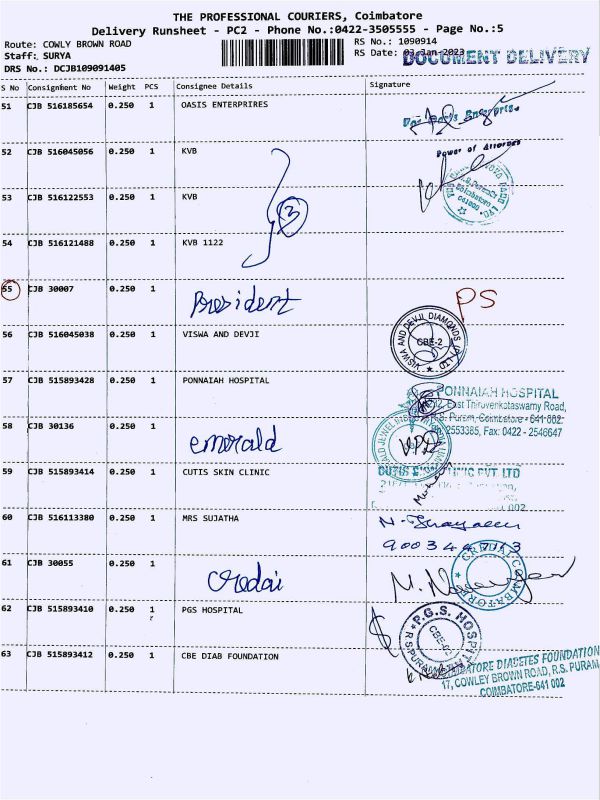 THE PROFESSIONAL COURIERS, Coimbatore
Delivery Runsheet - PC2 - Phone No.:0422-3505555 - Page No.:5
Route: COWLY BROWN ROAD
RS No.: 1090914
Staff: SURYA
RS Date: 03-Jan-2023
DOCUMENT DELIVERY
DRS No.: DCJB109091405
S No Consignment No Weight PCS Consignee Details Signature
51 CJB 516185654 0.250 1 OASIS ENTERPRIRES
52 CJB 516045056 0.250 1 KVB
Power of Attorney
53 CJB 516122553 0.250 1 KVB
3
54 CJB 516121488 0.250 1 KVB 1122
55 CJB 30007 0.250 1 President PS
56 CJB 516045038 0.250 1 VISWA AND DEVJI
VISWA AND DEVJI DIAMONDS (P) LTD
CBE-2
57 CJB 515893428 0.250 1 PONNAIAH HOSPITAL
PONNAIAH HOSPITAL
East Thiruvenkataswamy Road,
R.S. Puram, Coimbatore - 641 002.
Ph: 2553385, Fax: 0422 - 2546647
58 CJB 30136 0.250 1 emerald
59 CJB 515893414 0.250 1 CUTIS SKIN CLINIC
CUTIS SKIN CLINIC PVT. LTD
002
60 CJB 516113380 0.250 1 MRS SUJATHA
61 CJB 30055 0.250 1 Credai
CREDAI COIMBATORE
62 CJB 515893410 0.250 1 PGS HOSPITAL
P.G.S. HOSPITAL
R.S. PURAM
63 CJB 515893412 0.250 1 CBE DIAB FOUNDATION
COIMBATORE DIABETES FOUNDATION
17, COWLEY BROWN ROAD, R.S. PURAM
COIMBATORE-641 002